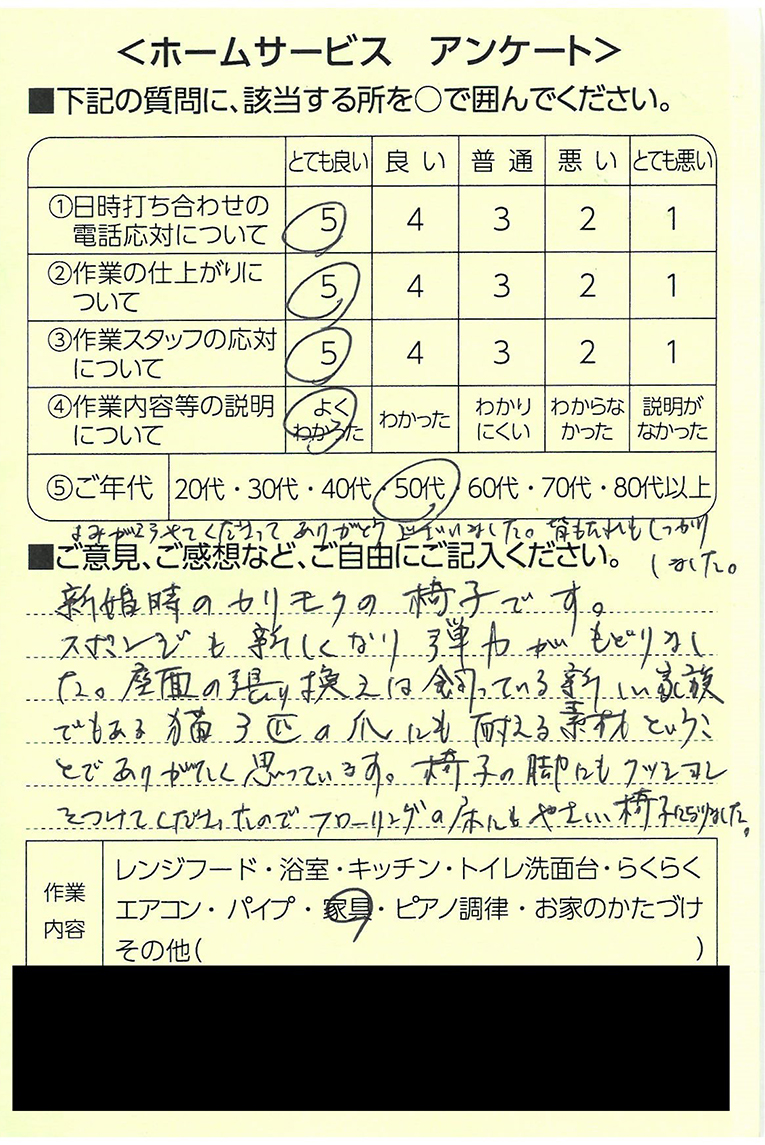 <ホームサービス アンケート>
■下記の質問に、該当する所を○で囲んでください。
とても良い 良い 普通 悪い とても悪い
①日時打ち合わせの電話応対について 5 4 3 2 1
②作業の仕上がりについて 5 4 3 2 1
③作業スタッフの応対について 5 4 3 2 1
④作業内容等の説明について よくわかった わかった わかりにくい わからなかった 説明がなかった
⑤ご年代 20代・30代・40代・50代・60代・70代・80代以上
よみがえらせてくださって ありがとうございました。背もたれもしっかり
しました。
■ご意見、ご感想など、ご自由にご記入ください。
新婚時のカリモクの椅子です。
スポンジも新しくなり弾力がもどりまし
た。座面の張り換えは飼っている新しい家族
でもある猫3匹の爪にも耐える素材というこ
とでありがたく思っています。椅子の脚にもクッション
をつけてくださったのでフローリングの床にもやさしい椅子になりました。
作業内容
レンジフード・浴室・キッチン・トイレ洗面台・らくらく
エアコン・パイプ・家具・ピアノ調律・お家のかたづけ
その他( )